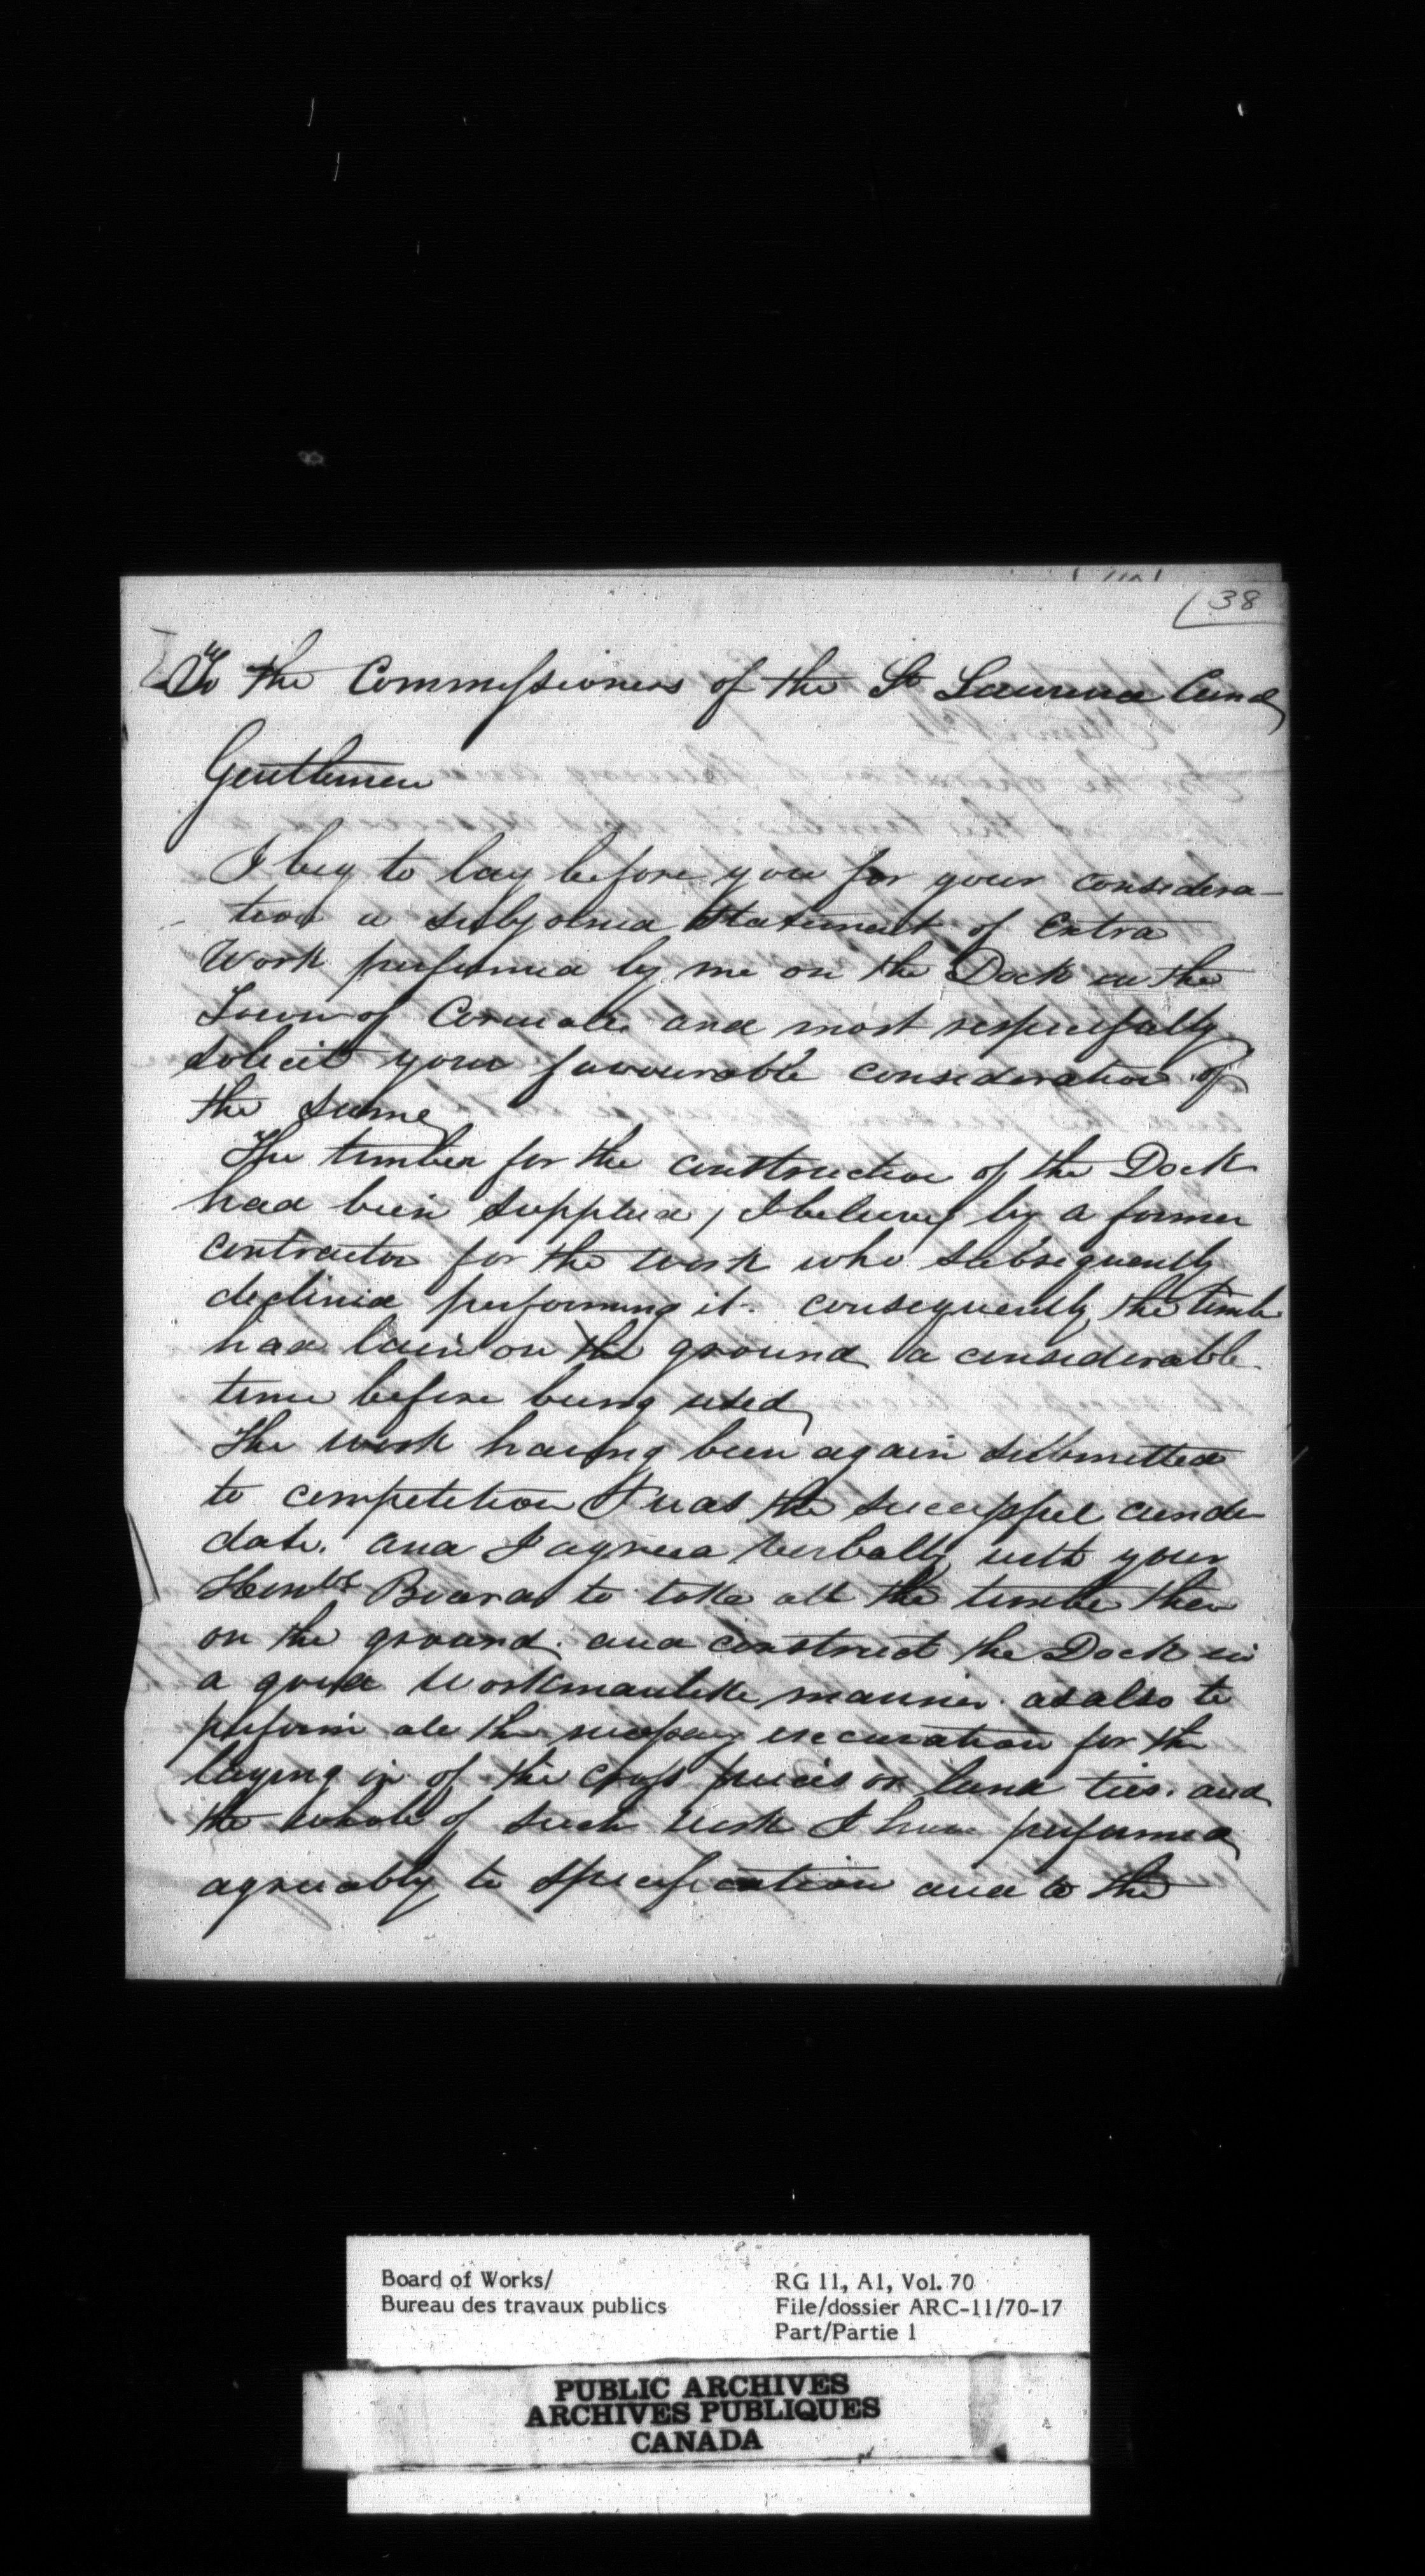 38
To the Commissioners of the St Laurence Canal
Gentlemen
I beg to lay before you for your considera-
tion a subjoined statement of Extra
Work performed by me on the Dock in the
Town of Cornwall and most respectfully
solicit your favourable consideration of
the same
The timber for the construction of the Dock
had been supplied, I believe, by a former
contractor for the work who subsequently
declined performing it. consequently the timber
had lain on the ground a considerable
time before being used,
The work having been again submitted
to competition I was the successful candi-
date. and I agreed verbally with your
Honble Board to take all the timber then
on the ground. and construct the Dock in
a good Workmanlike manner. as also to
perform all the necessary excavation for the
laying in of the cross pieces or land ties. and
the whole of such work I have performed
agreeably to specification and to the
Board of Works/
Bureau des travaux publics
RG 11, A1, Vol. 70
File/dossier ARC-11/70-17
Part/Partie 1
PUBLIC ARCHIVES
ARCHIVES PUBLIQUES
CANADA